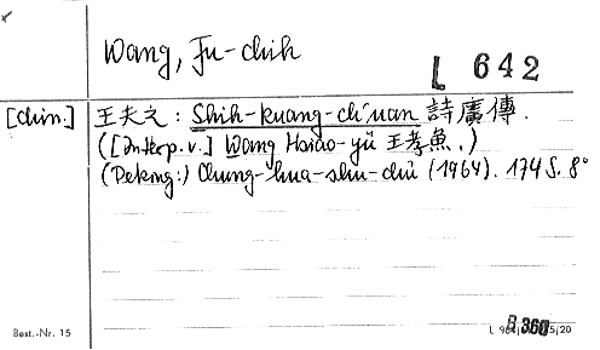 Wang, Fu-chih
L 642
[Chin.] 王夫之: Shih-kuang-ch'uan 詩廣傳.
([Interp. v.] Wang Hsiao-yü 王孝魚.)
(Peking:) Chung-hua-shu-chü (1964). 174 S. 8°
Best.-Nr. 15
B 360